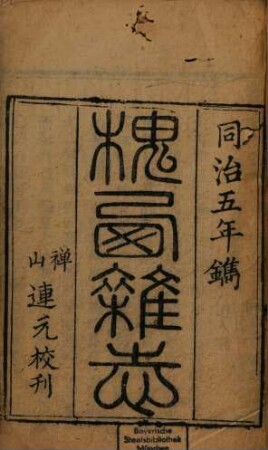 同治五年鐫
槐西雜志
禅山
連元校刊
Bayerische
Staatsbibliothek
München